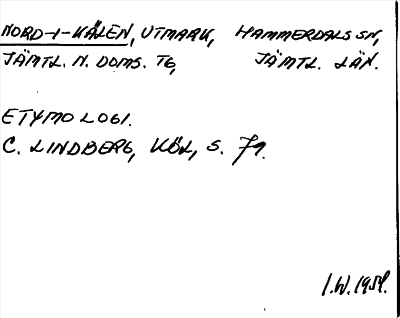 NORD-I-KÄLEN, UTMARK, HAMMERDALS SN,
JÄMTL. N. DOMS. TG, JÄMTL. LÄN.
ETYMOLOGI.
C. LINDBERG, KÖL, S. 79.
I.W. 1954.